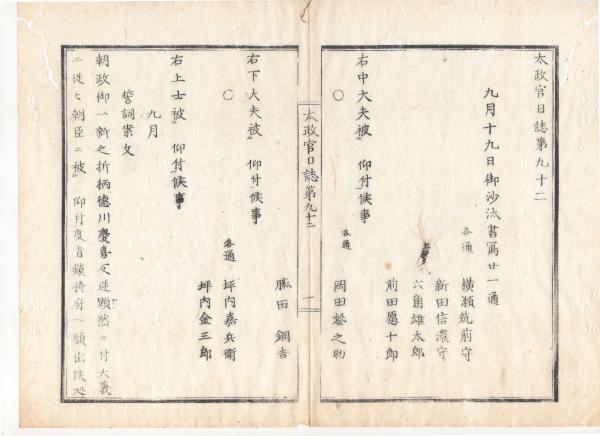 太政官日誌第九十二
九月十九日御沙汰書寫廿一通
各通 横瀬筑前守
新田信濃守
六角雄太郎
前田愿十郎
右中大夫被 仰付候事
○
各通 岡田鍫之助
太政官日誌第九十二 一
勝田鋼吉
右下大夫被 仰付候事
○
各通 坪内嘉兵衛
坪内金三郎
右上士被 仰付候事
九月
誓詞案文
朝政御一新之折柄德川慶喜反逆顕然ニ付大義
ニ従ヒ朝臣ニ被 仰付度旨鎮将府ヘ願出候処